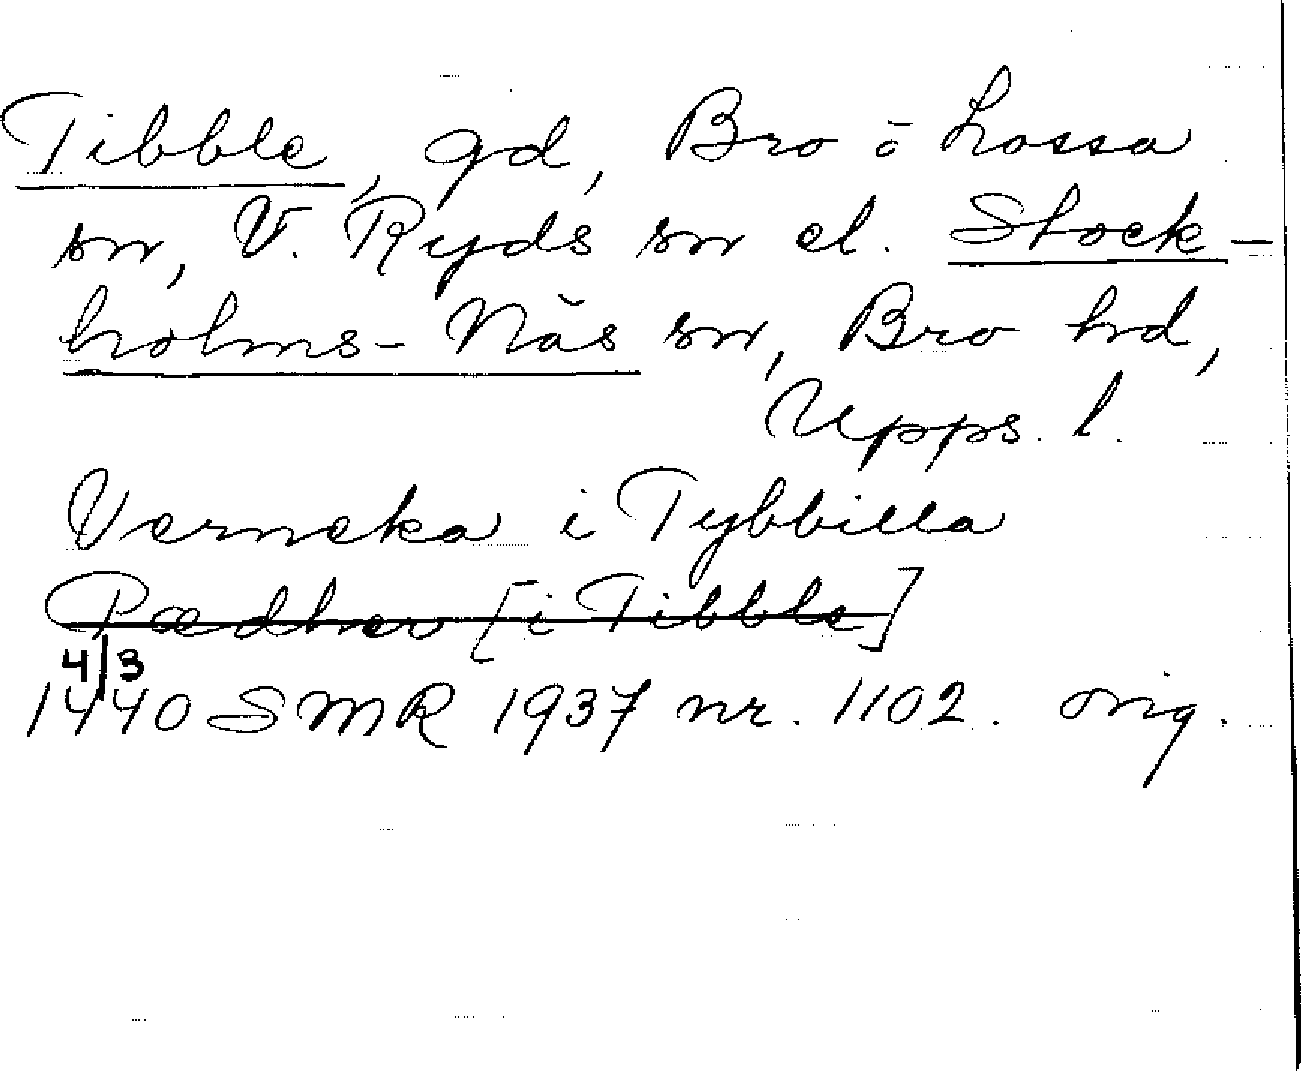 Tibble, gd, Bro o Lossa
sn, V. Ryds sn el. Stock-
holms-Näs sn, Bro hd,
Upps. l.
Verneka i Tybbilla
Pædher [i Tibble]
4/3
1440 SMR 1937 nr. 1102. orig.